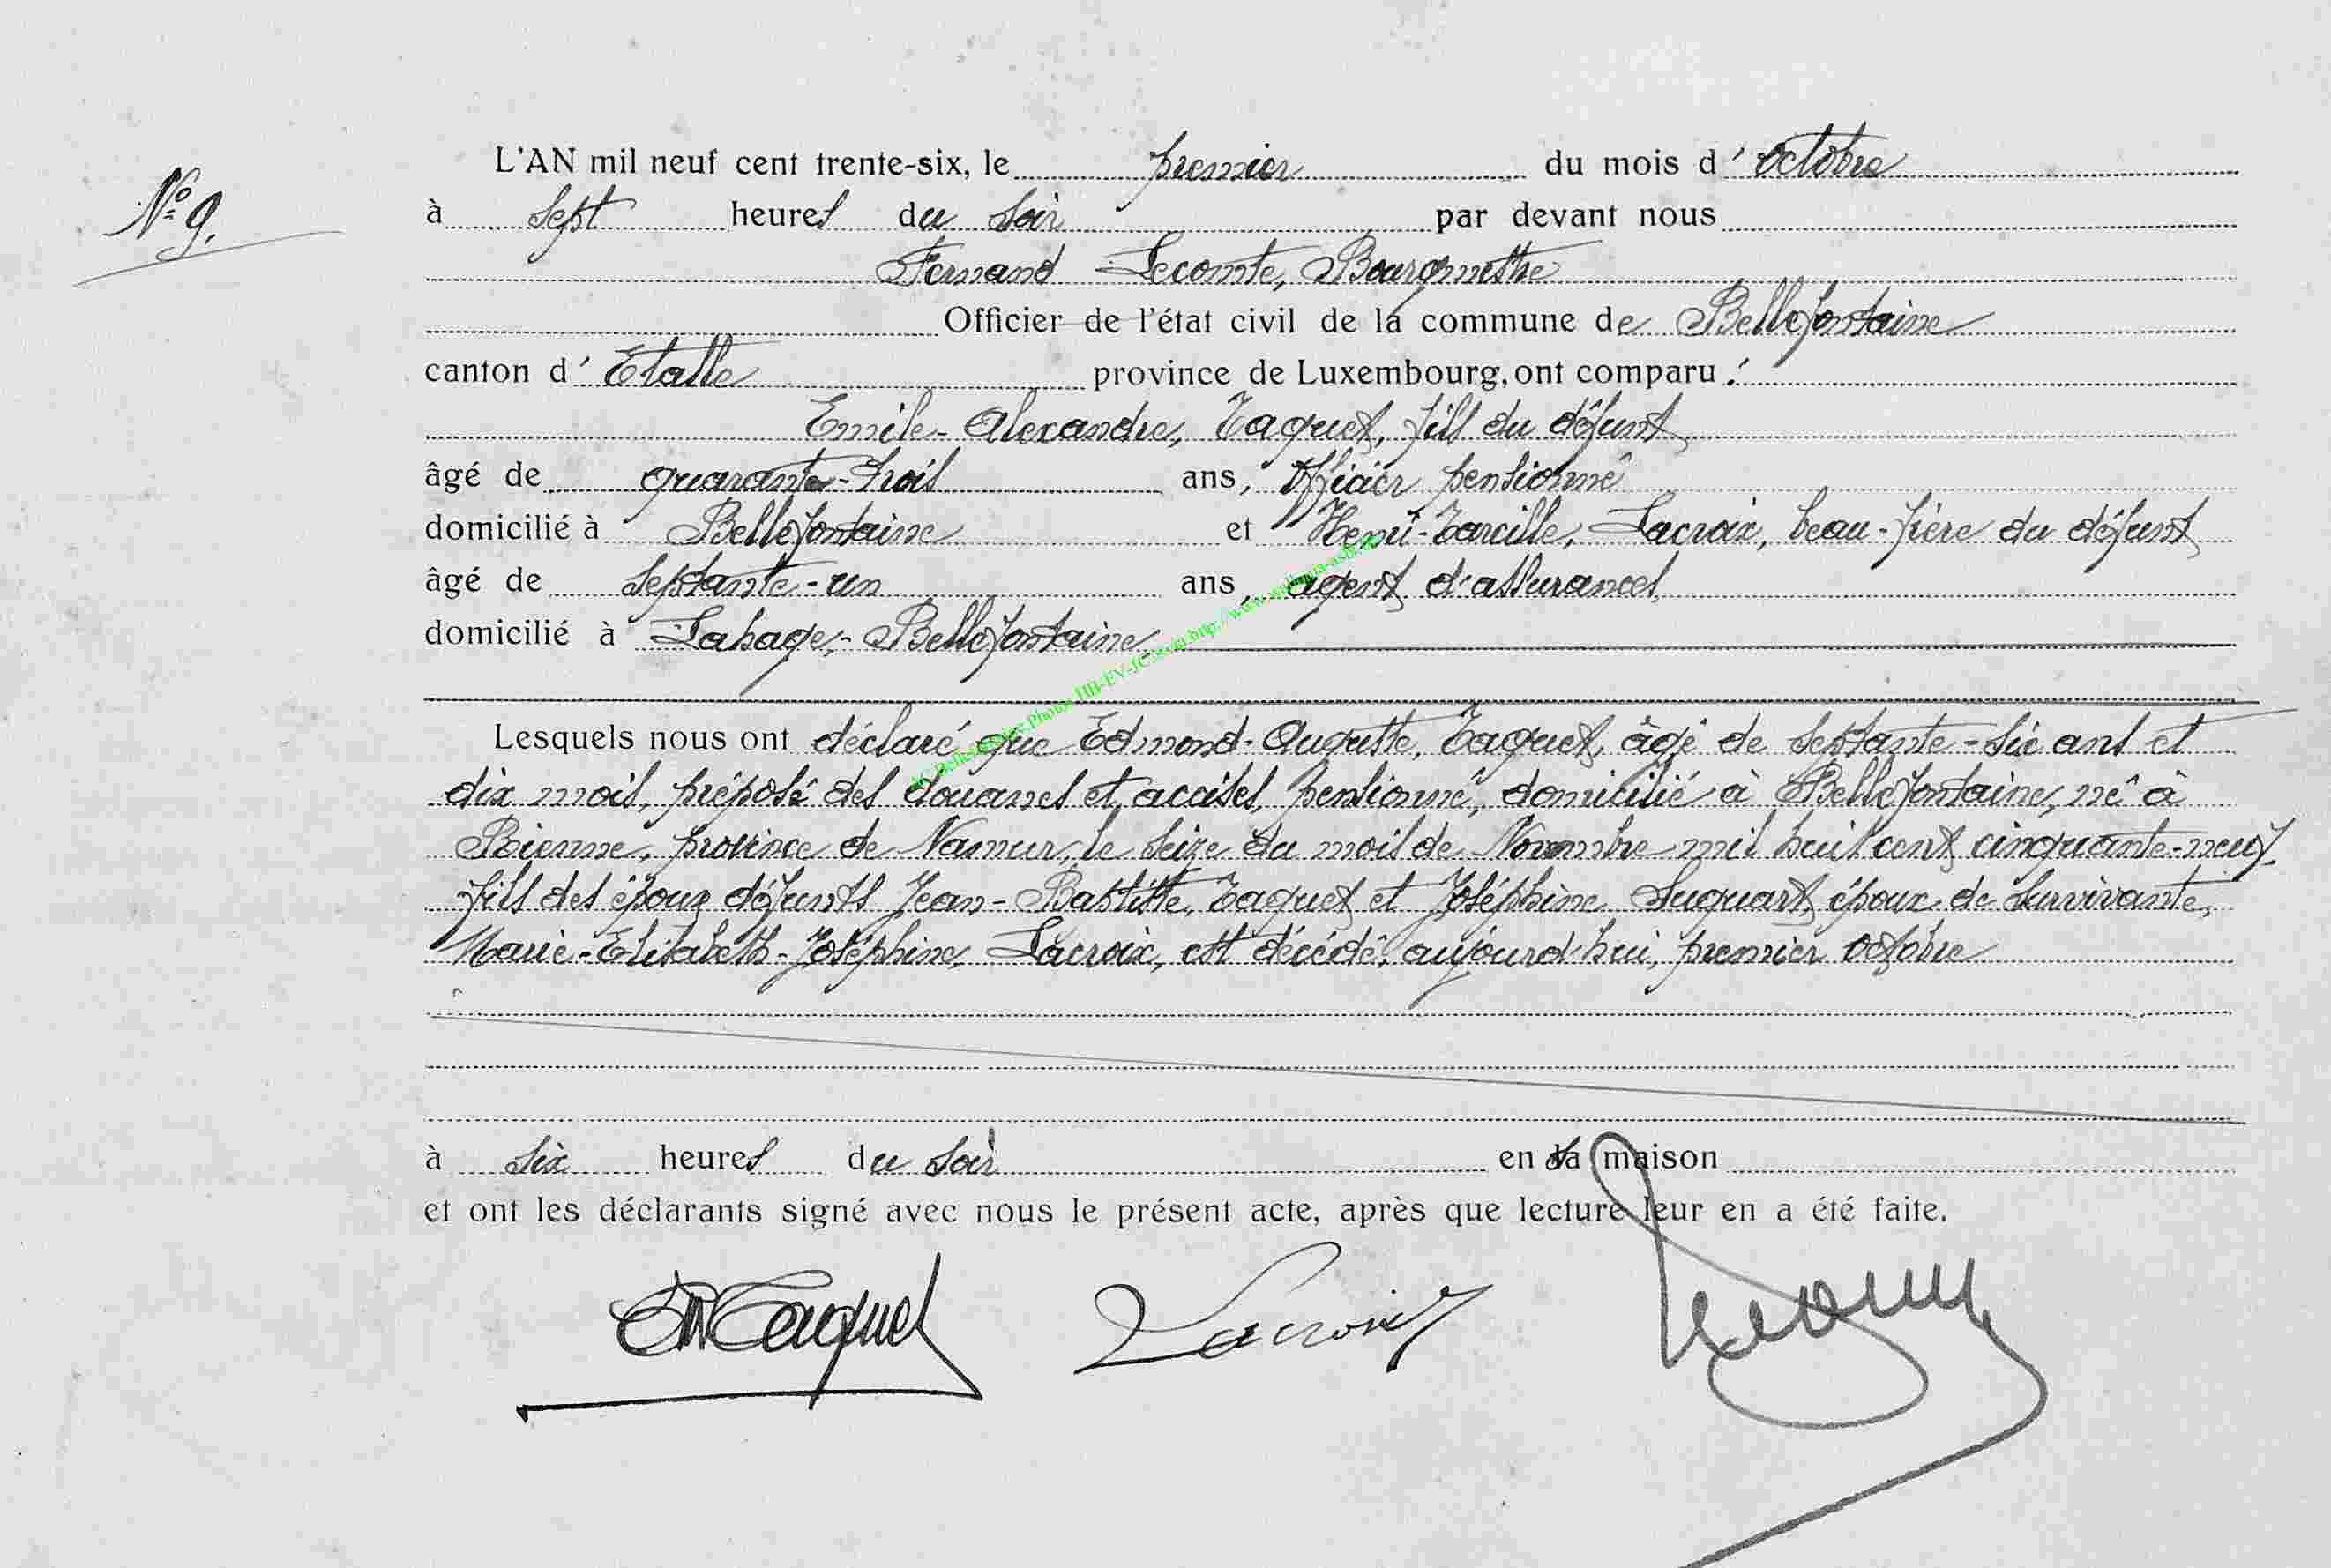 N° 9.
L'AN mil neuf cent trente-six, le premier du mois d'octobre
à sept heures du soir par devant nous
Fernand Lecomte, Bourgmestre
Officier de l'état civil de la commune de Bellefontaine
canton d'Etalle province de Luxembourg, ont comparu :
Emile-Alexandre, Taquet, fils du défunt
âgé de quarante-trois ans, Officier pensionné
domicilié à Bellefontaine et Henri-Tarcille, Lacroix, beau-frère du défunt
âgé de septante-un ans, agent d'assurances
domicilié à Lahage-Bellefontaine
Lesquels nous ont déclaré que Edmond-Auguste, Taquet, âgé de septante-six ans et
dix mois, préposé des douanes et accises, pensionné, domicilié à Bellefontaine, né à
Bienne, province de Namur, le seize du mois de Novembre mil huit cent cinquante-neuf,
fils des époux défunts Jean-Baptiste, Taquet et Joséphine Suquart, époux de survivante,
Marie-Elisabeth-Joséphine, Lacroix, est décédé, aujourd'hui, premier octobre
à six heures du soir en sa maison
et ont les déclarants signé avec nous le présent acte, après que lecture leur en a été faite.
Em Taquet Lacroix